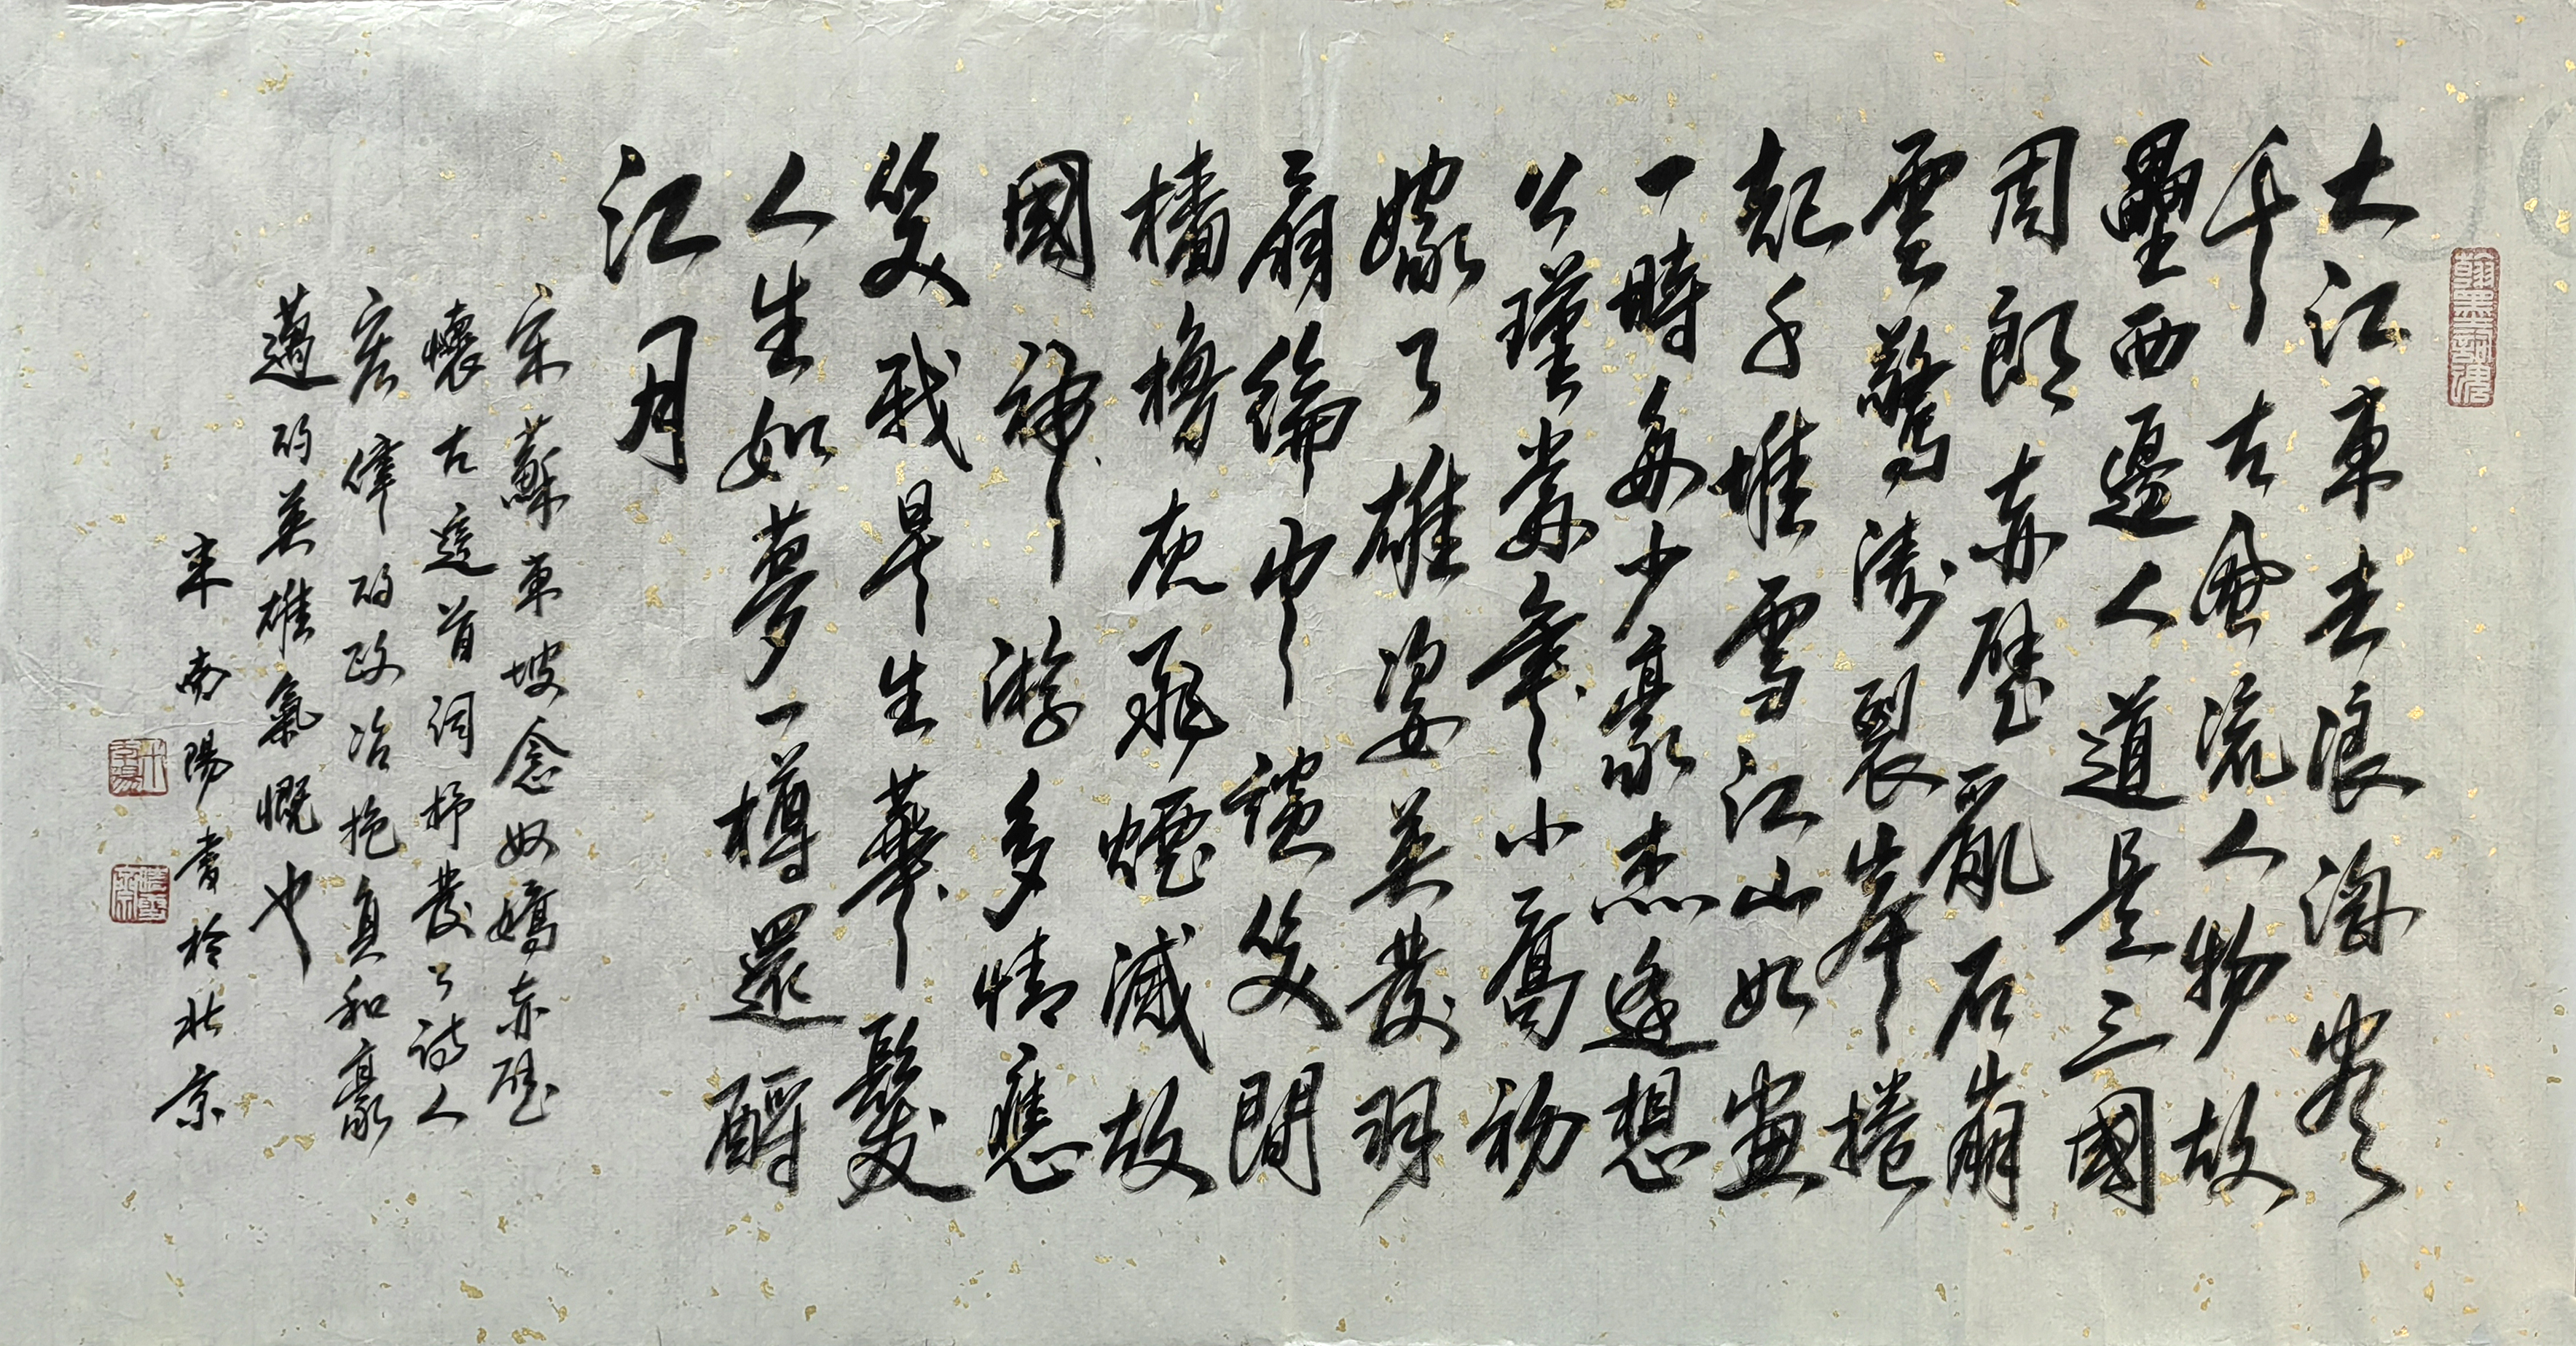 大江東去浪淘盡
千古風流人物故
壘西邊人道是三國
周郎赤壁亂石崩
雲驚濤裂岸捲
起千堆雪江山如畫
一時多少豪杰遙想
公瑾當年小喬初
嫁了雄姿英發羽
扇綸巾談笑間
檣櫓灰飛煙滅故
國神游多情應
笑我早生華髮
人生如夢一樽還酹
江月
宋蘇東坡念奴嬌赤壁
懷古這首詞抒發了詩人
宏偉的政治抱負和豪
邁的英雄氣慨也
宋南陽書於北京